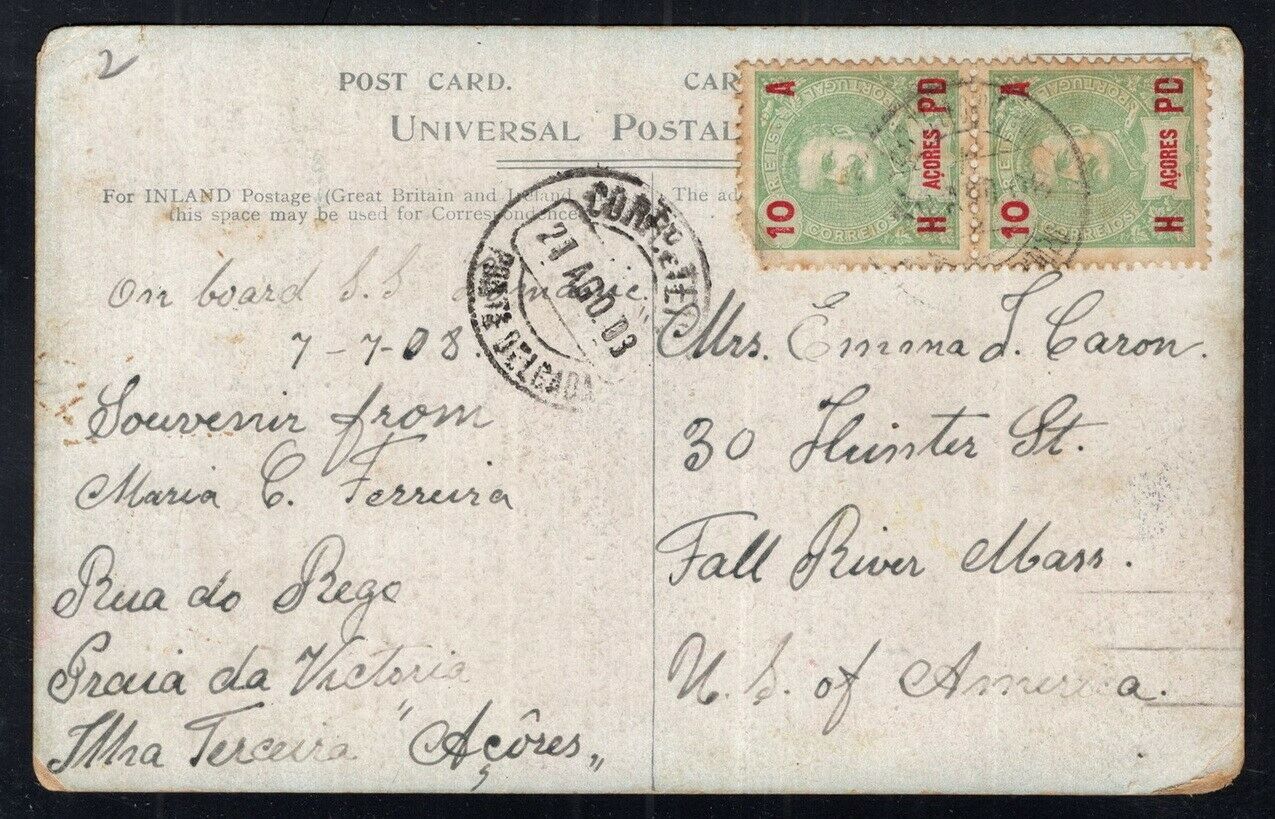 2
POST CARD. CAR
UNIVERSAL POSTAL
For INLAND Postage (Great Britain and Ireland The ad
this space may be used for Correspondence
10 A AÇORES H PD
CORREIOS
10 A AÇORES H PD
CORREIOS
PONTA DELGADA
21 AGO. 03
On board S.S
7-7-08.
Souvenir from
Maria C. Ferreira
Rua do Rego
Praia da Victoria
Ilha Terceira "Açôres"
Mrs. Emma J. Caron.
30 Hunter St.
Fall River Mass.
U. S. of America.